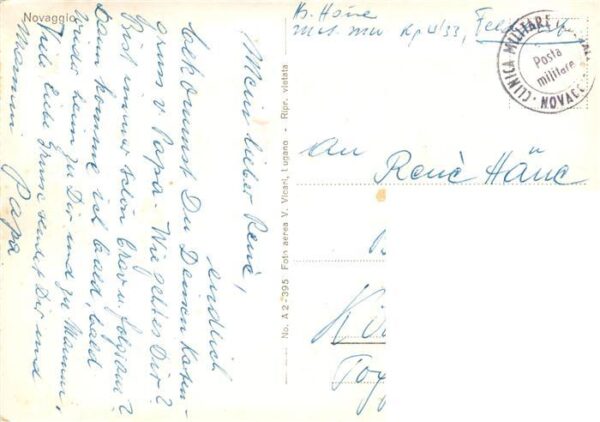 Novaggio
Mein lieber René,
endlich
bekommst Du Deinen Karten-
gruss v. Papa. Wie geht es Dir?
Bist immer schön brav u. folgsam?
Dann komme ich bald, bald
wieder heim zu Dir und zu Mammi,
Viele liebe Grüsse sendet Dir und
Mammi Papa
No. A 2-395 Foto aerea V. Vicari, Lugano - Ripr. vietata
Häne
Feldpost
CLINICA MILITARE
Posta
militare
NOVAGG
An
René Häne